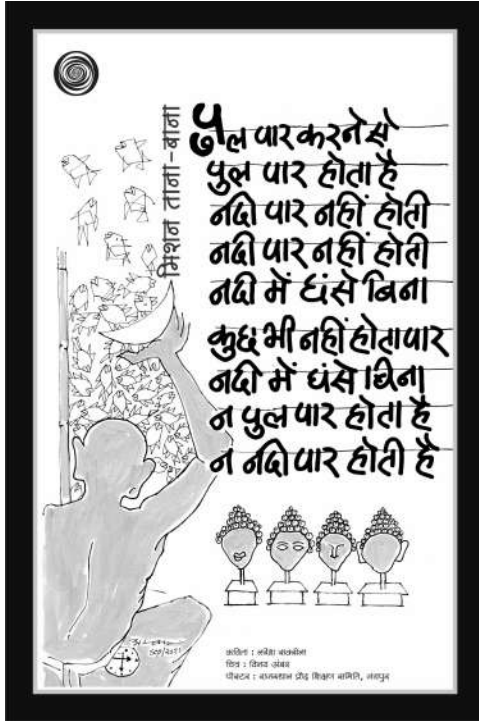 मिशन ताना-बाना
पुल पार करने से
पुल पार होता है
नदी पार नहीं होती
नदी पार नहीं होती
नदी में धंसे बिना
कुछ भी नहीं होता पार
नदी में धंसे बिना
न पुल पार होता है
न नदी पार होती है
कविता : नरेश सक्सेना
चित्र : विनय अंबर
पोस्टर : राजस्थान प्रौढ़ शिक्षण समिति, जयपुर